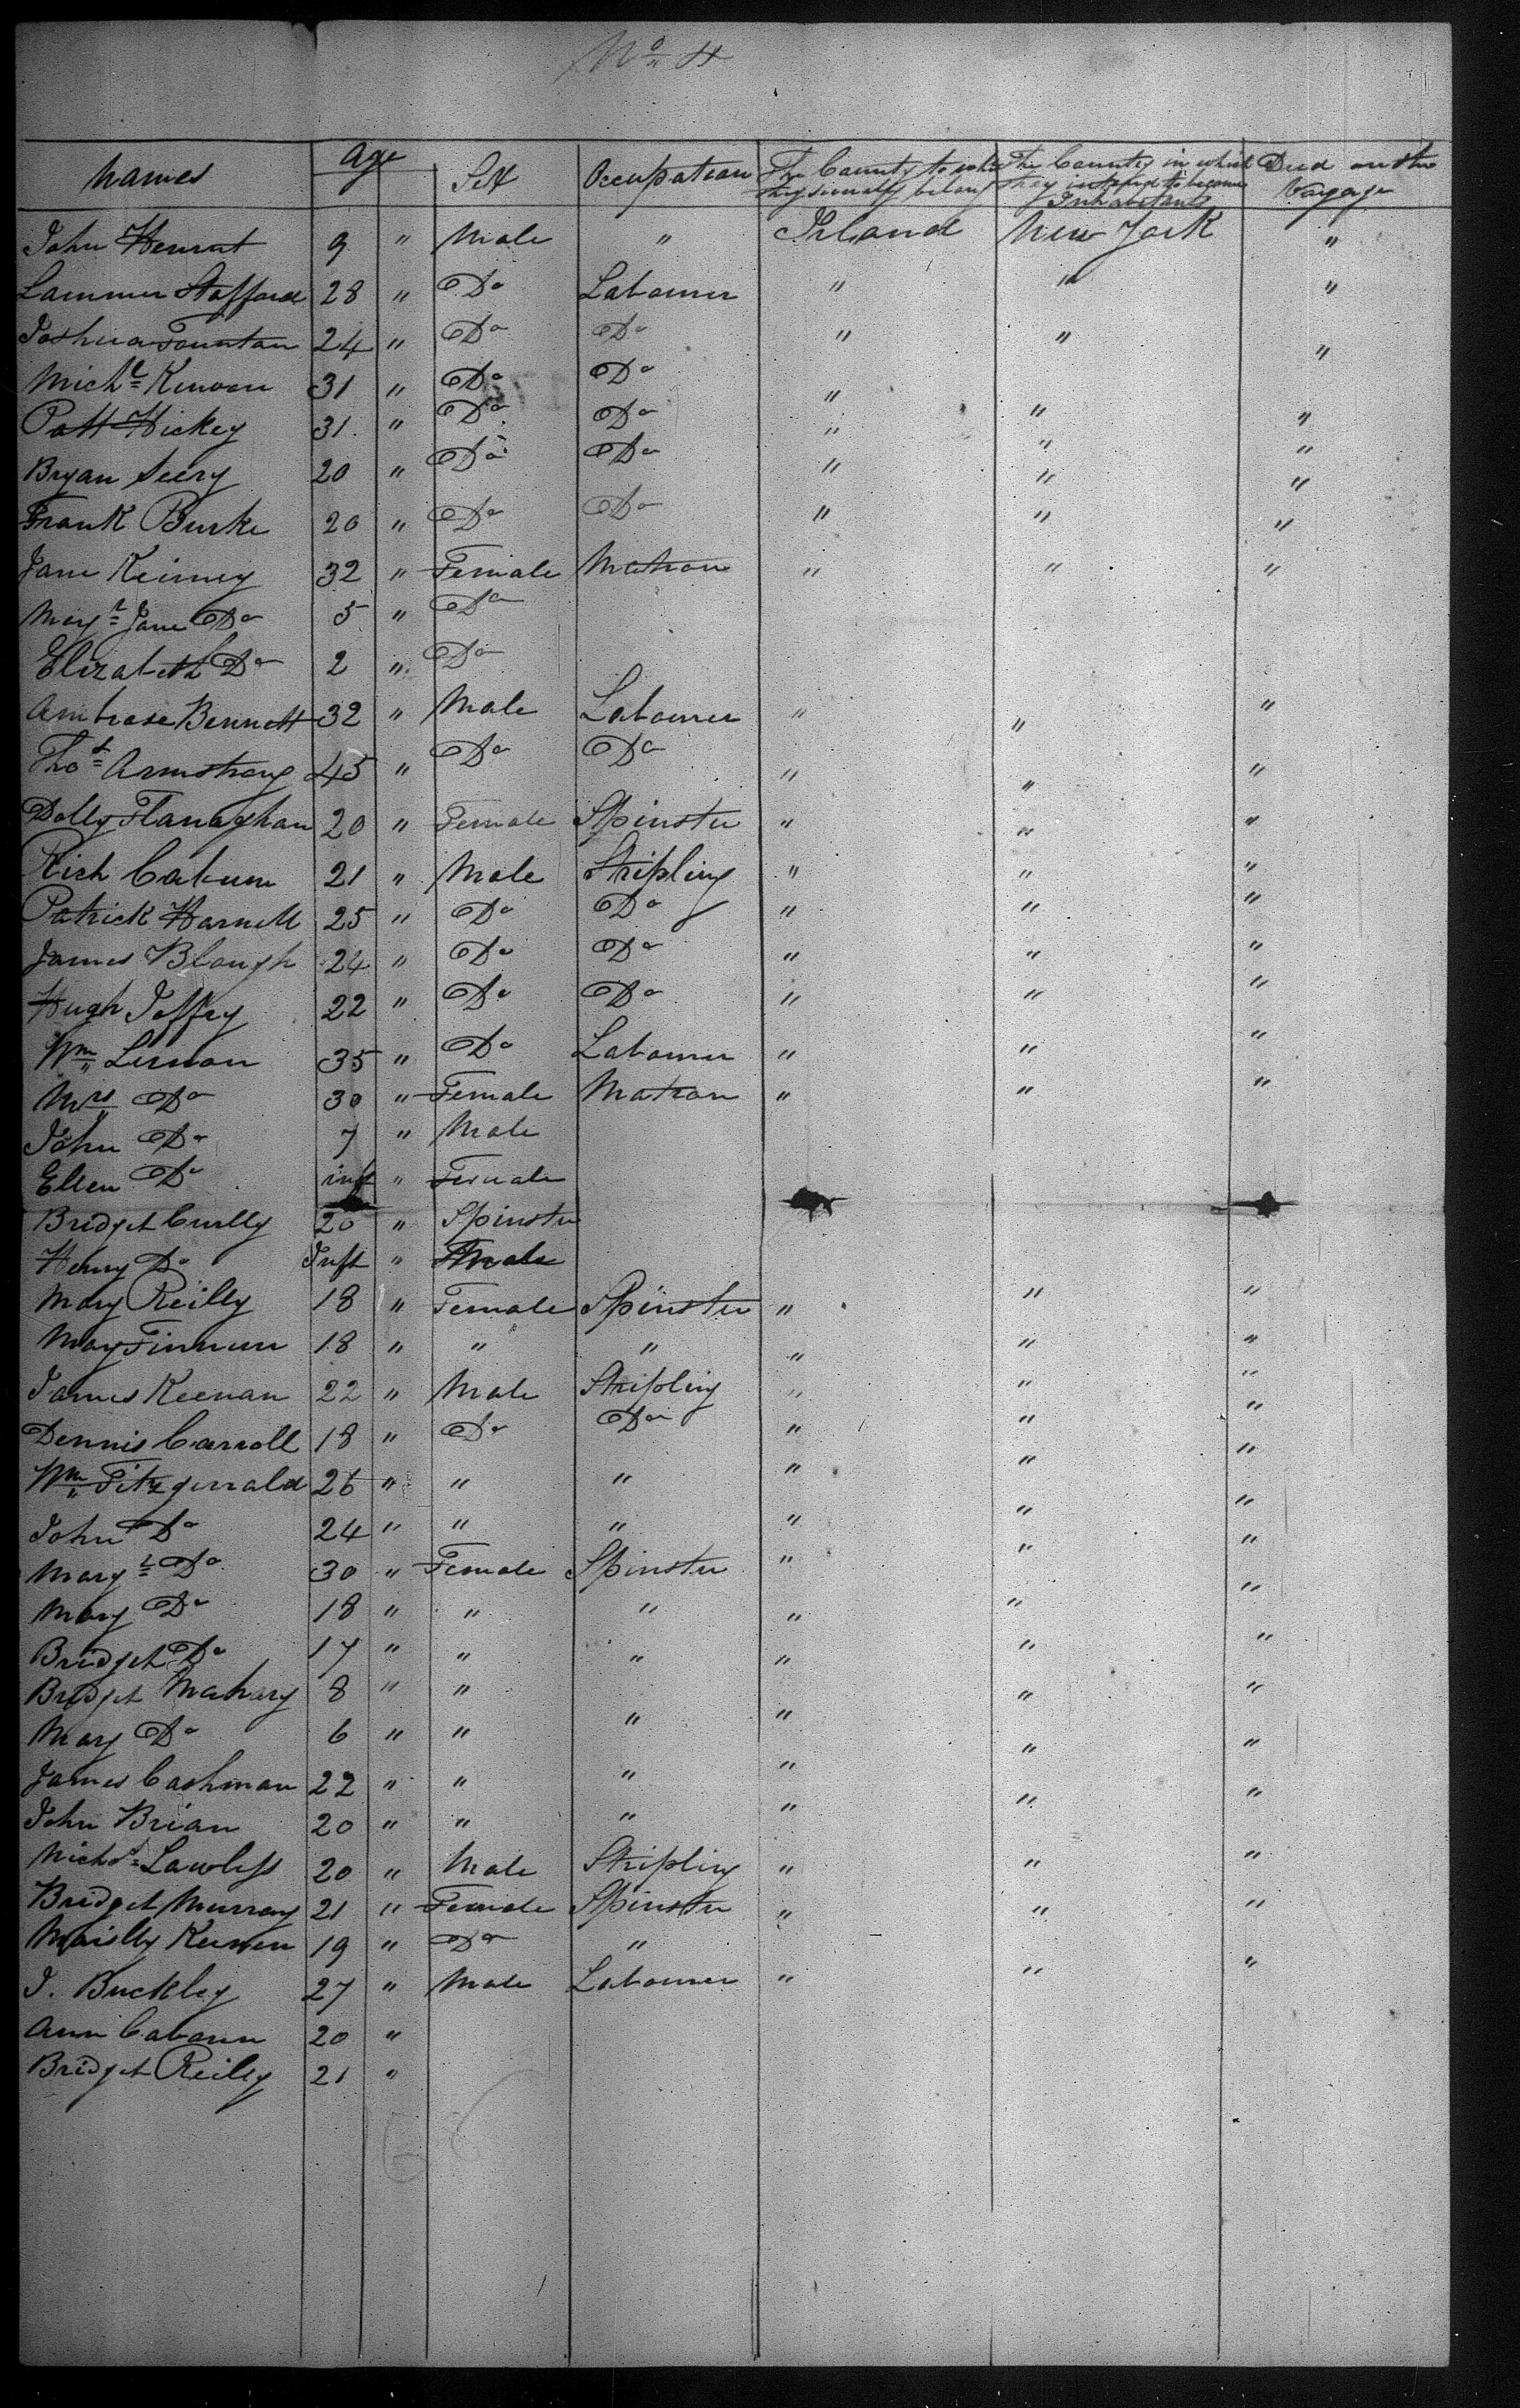 No 4
Names Age Sex Occupation The County to which they severally belong The County in which they intend to become Inhabitants Died on the Voyage
John 9 " Male " Irland New York "
Stafford 28 " Do Labourer " " "
Joshua Fountan 24 " Do Do " " "
Michl Kirwan 31 " Do Do " " "
Patt Hickey 31 " Do Do " " "
Bryan Seery 20 " Do Do " " "
Frank Burke 20 " Do Do " " "
Jane Keirney 32 " Female Matron " " "
Jane Do 5 " Do
Elizabeth Do 2 " Do
Ambrose Bennett 32 " Male Labourer " " "
Thos Armstrong 45 " Do Do " " "
Dolly Flanaghan 20 " Female Spinster " " "
Rich 21 " Male Stripling " " "
Patrick Harnell 25 " Do Do " " "
James Blough 24 " Do Do " " "
Hugh Joffry 22 " Do Do " " "
Wm Lernon 35 " Do Labourer " " "
Mrs Do 30 " Female Matron " " "
John Do 7 " Male
Ellen Do inft " Female
Bridget Curlly 20 " Spinster
Henry Do Inft " Male
Mary Reilly 18 " Female Spinster " " "
May 18 " " " " " "
James Keenan 22 " Male Stripling " " "
Dennis Carroll 18 " Do Do " " "
Wm Fitzgerrald 26 " " " " " "
John Do 24 " " " " " "
Margt Do 30 " Female Spinster " " "
Mary Do 18 " " " " " "
Bridget Do 17 " " " " " "
Bridget Mahary 8 " " " " "
Mary Do 6 " " " " " "
James Cashman 22 " " " " " "
John Brian 20 " " " " " "
Nichos Lawless 20 " Male Stripling " " "
Bridget Murray 21 " Female Spinster " " "
19 " Do "
J. Buckley 27 " Male Labourer " " "
Ann 20 "
Bridget Reilly 21 "